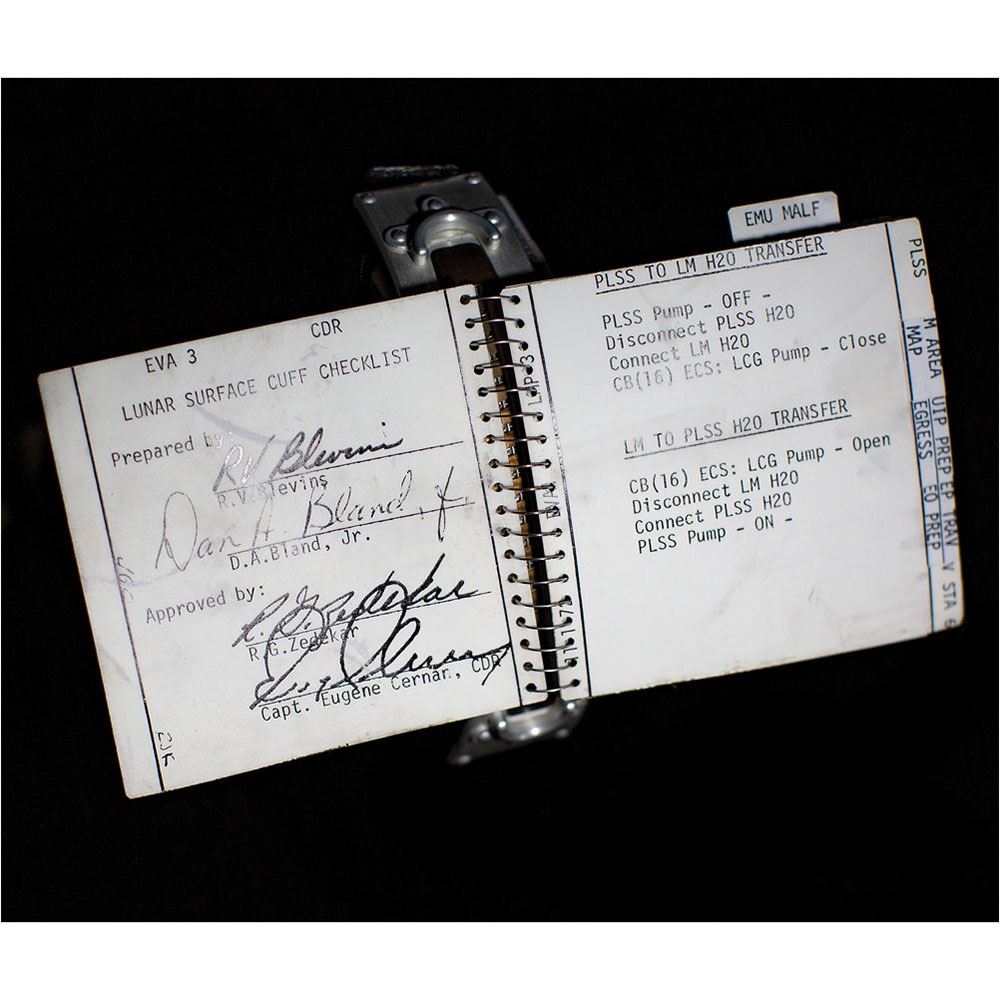 EVA 3 CDR
LUNAR SURFACE CUFF CHECKLIST
Prepared by:
RV Blevins
R.V.Blevins
Dan A. Bland, Jr.
D.A.Bland, Jr.
Approved by:
R. G. Zedekar
R.G.Zedekar
Eugene Cernan
Capt. Eugene Cernan, CDR
EMU MALF
PLSS TO LM H2O TRANSFER
PLSS Pump - OFF -
Disconnect PLSS H2O
Connect LM H2O
CB(16) ECS: LCG Pump - Close
LM TO PLSS H2O TRANSFER
CB(16) ECS: LCG Pump - Open
Disconnect LM H2O
Connect PLSS H2O
PLSS Pump - ON -
PLSS
MAP EGRESS EO PREP
M AREA UIP PREP EP TRAV V STA 6